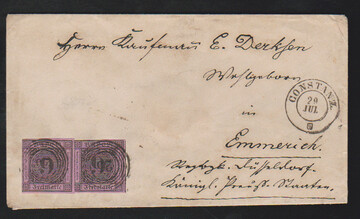 Herrn Kaufmann E. Derksen
Wohlgeboren
in
CONSTANZ
20
JUL
Emmerich.
Regbzk. Düsseldorf.
Königl. Preuß. Staaten.
9 9
Freimarke Freimarke